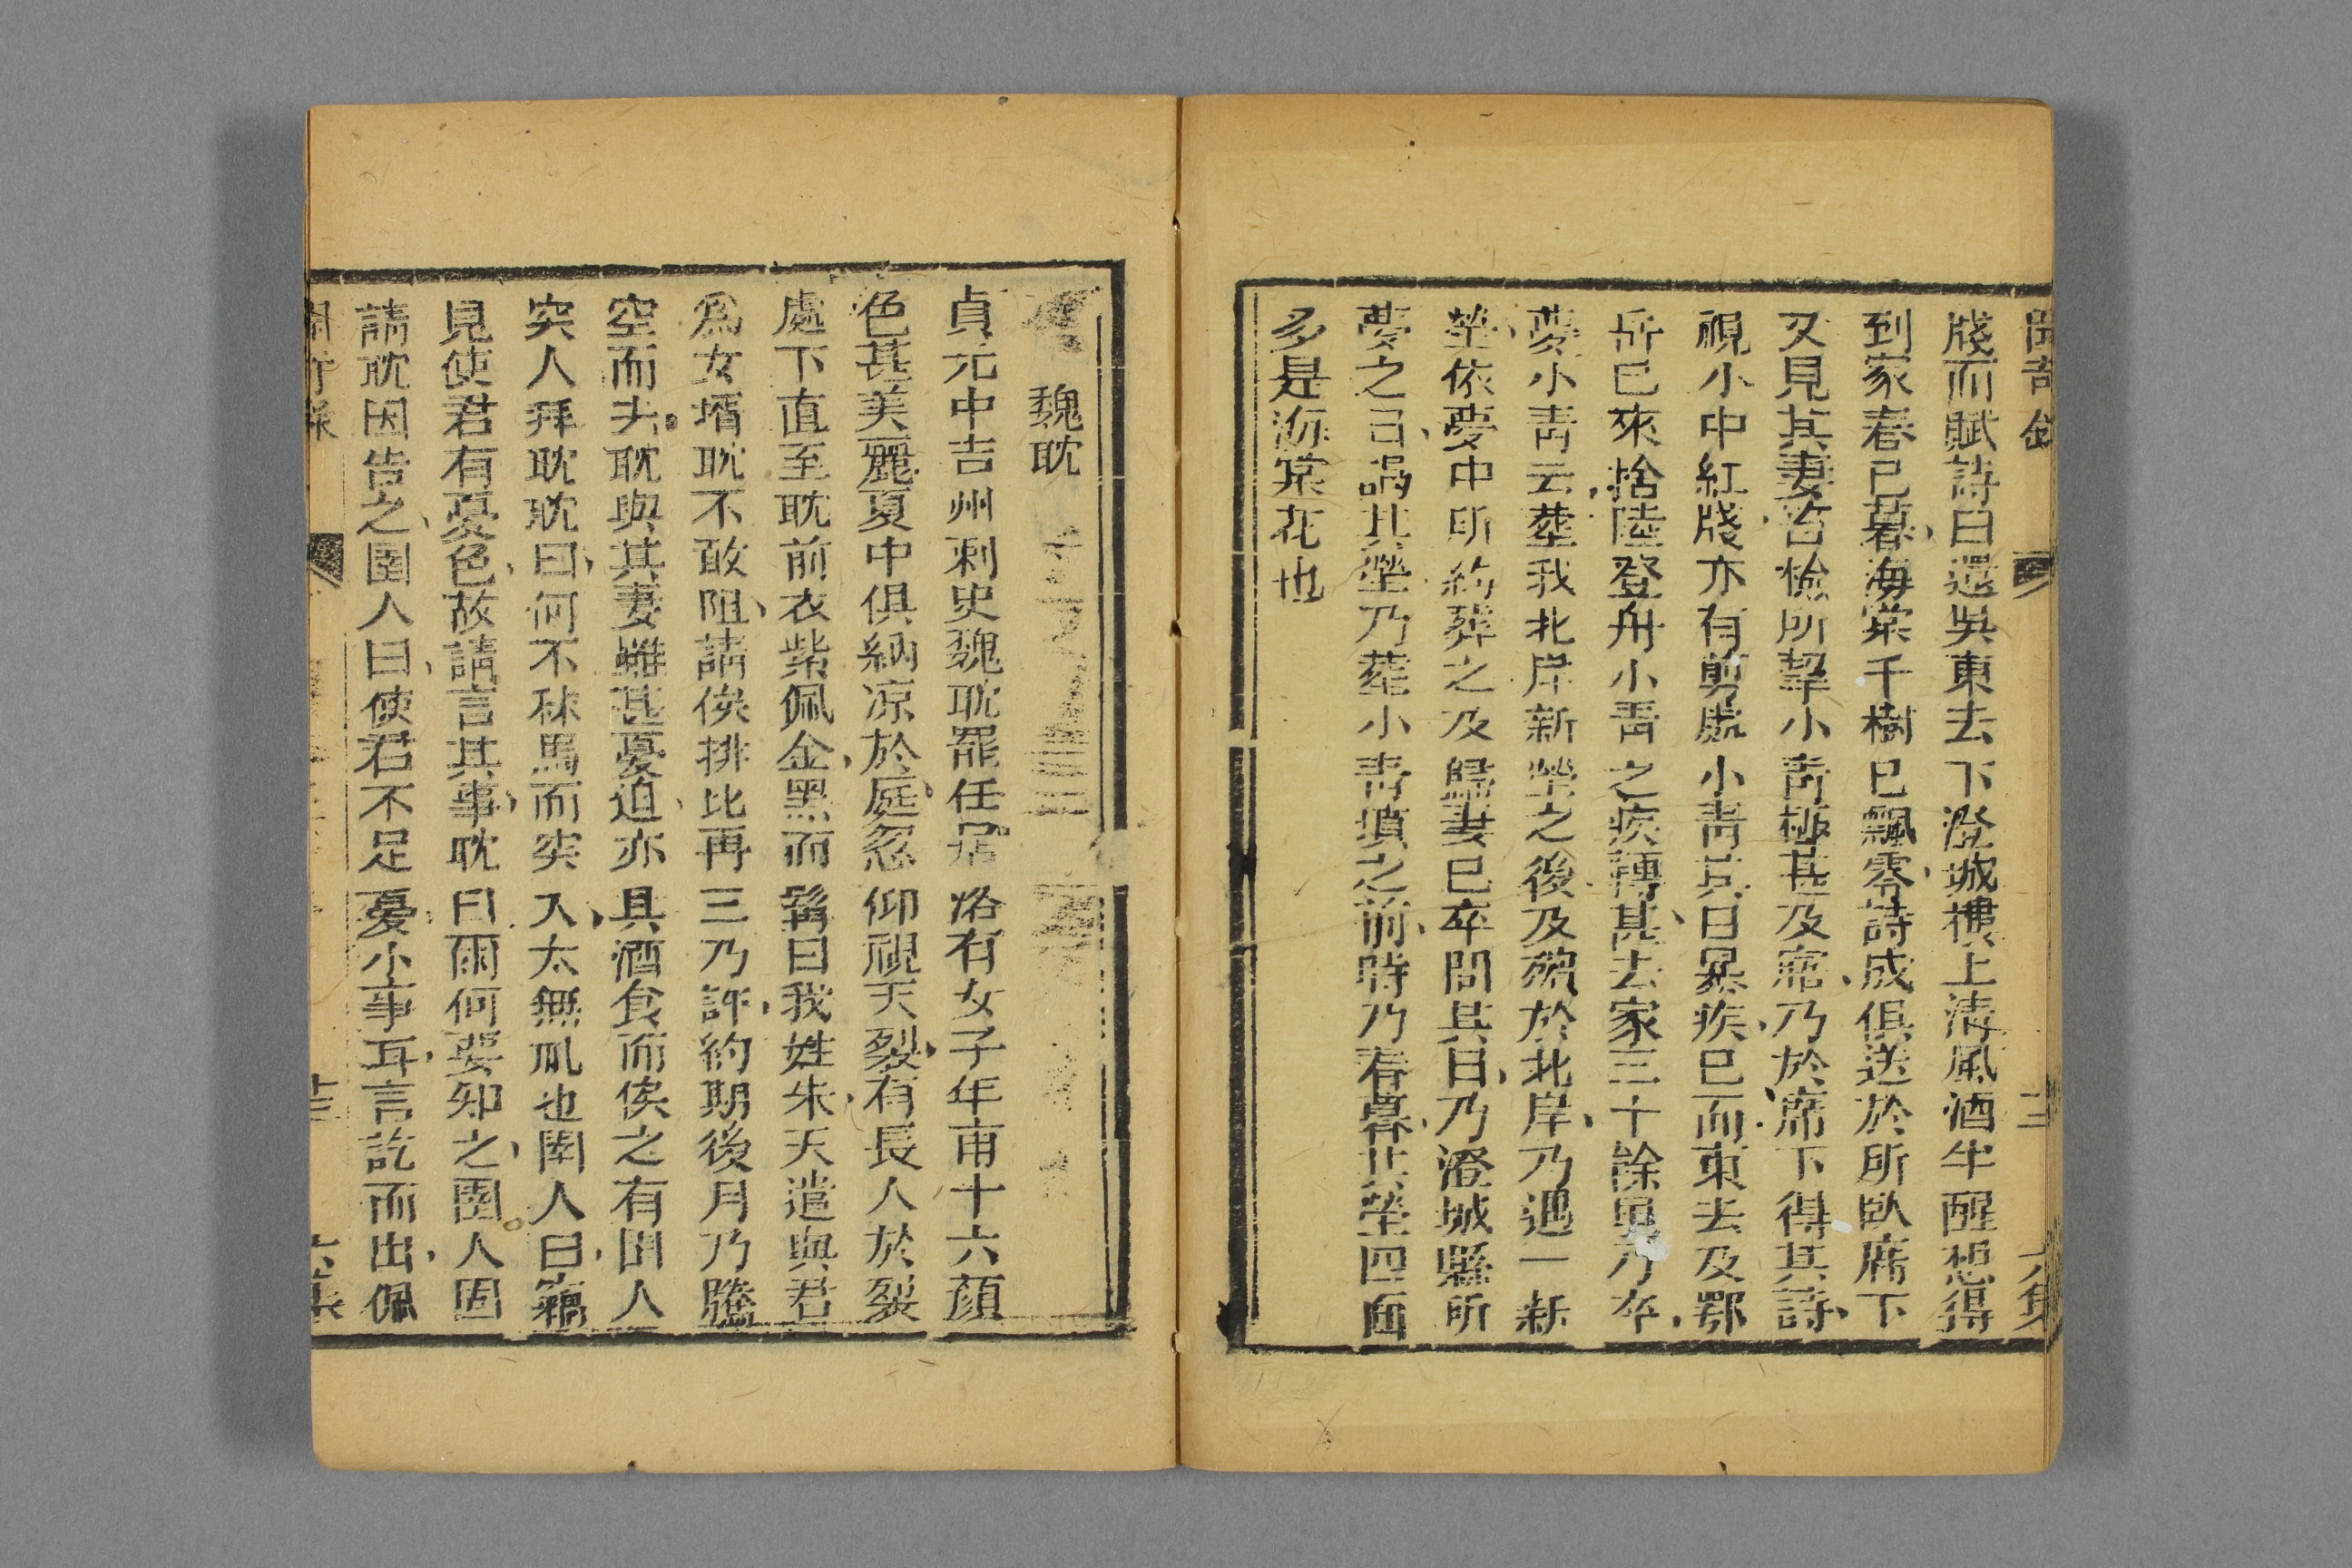 牋而賦詩曰還吳東去下澄城樓上清風酒半醒想得
到家春已暮海棠千樹已飄零詩成俱送於所臥席下
又見其妻笞愴所挈小青極甚及寤乃於席下得其詩
視小中紅牋亦有剪處小青其日暴疾已而東去及鄂
岳已來捨陸登舟小青之疾轉甚去家三十餘里乃卒
夢小青云葬我北岸新塋之後及殯於北岸乃遇一新
塋依夢中所約葬之及歸妻已卒問其日乃澄城縣所
夢之日謁其塋乃葬小青墳之前時乃春暮其塋四面
多是海棠花也
魏耽
貞元中吉州刺史魏耽罷任居洛有女子年甫十六顏
色甚美麗夏中俱納凉於庭忽仰視天裂有長人於裂
處下直至耽前衣紫佩金黑而髯曰我姓朱天遣與君
為女壻耽不敢阻請俟排比再三乃許約期後月乃騰
空而去耽與其妻雖甚憂迫亦具酒食而俟之有圉人
突人拜耽耽曰何不秣馬而突入太無禮也圉人曰竊
見使君有憂色故請言其事耽曰爾何要知之圉人固
請耽因告之圉人曰使君不足憂小事耳言訖而出佩
六集